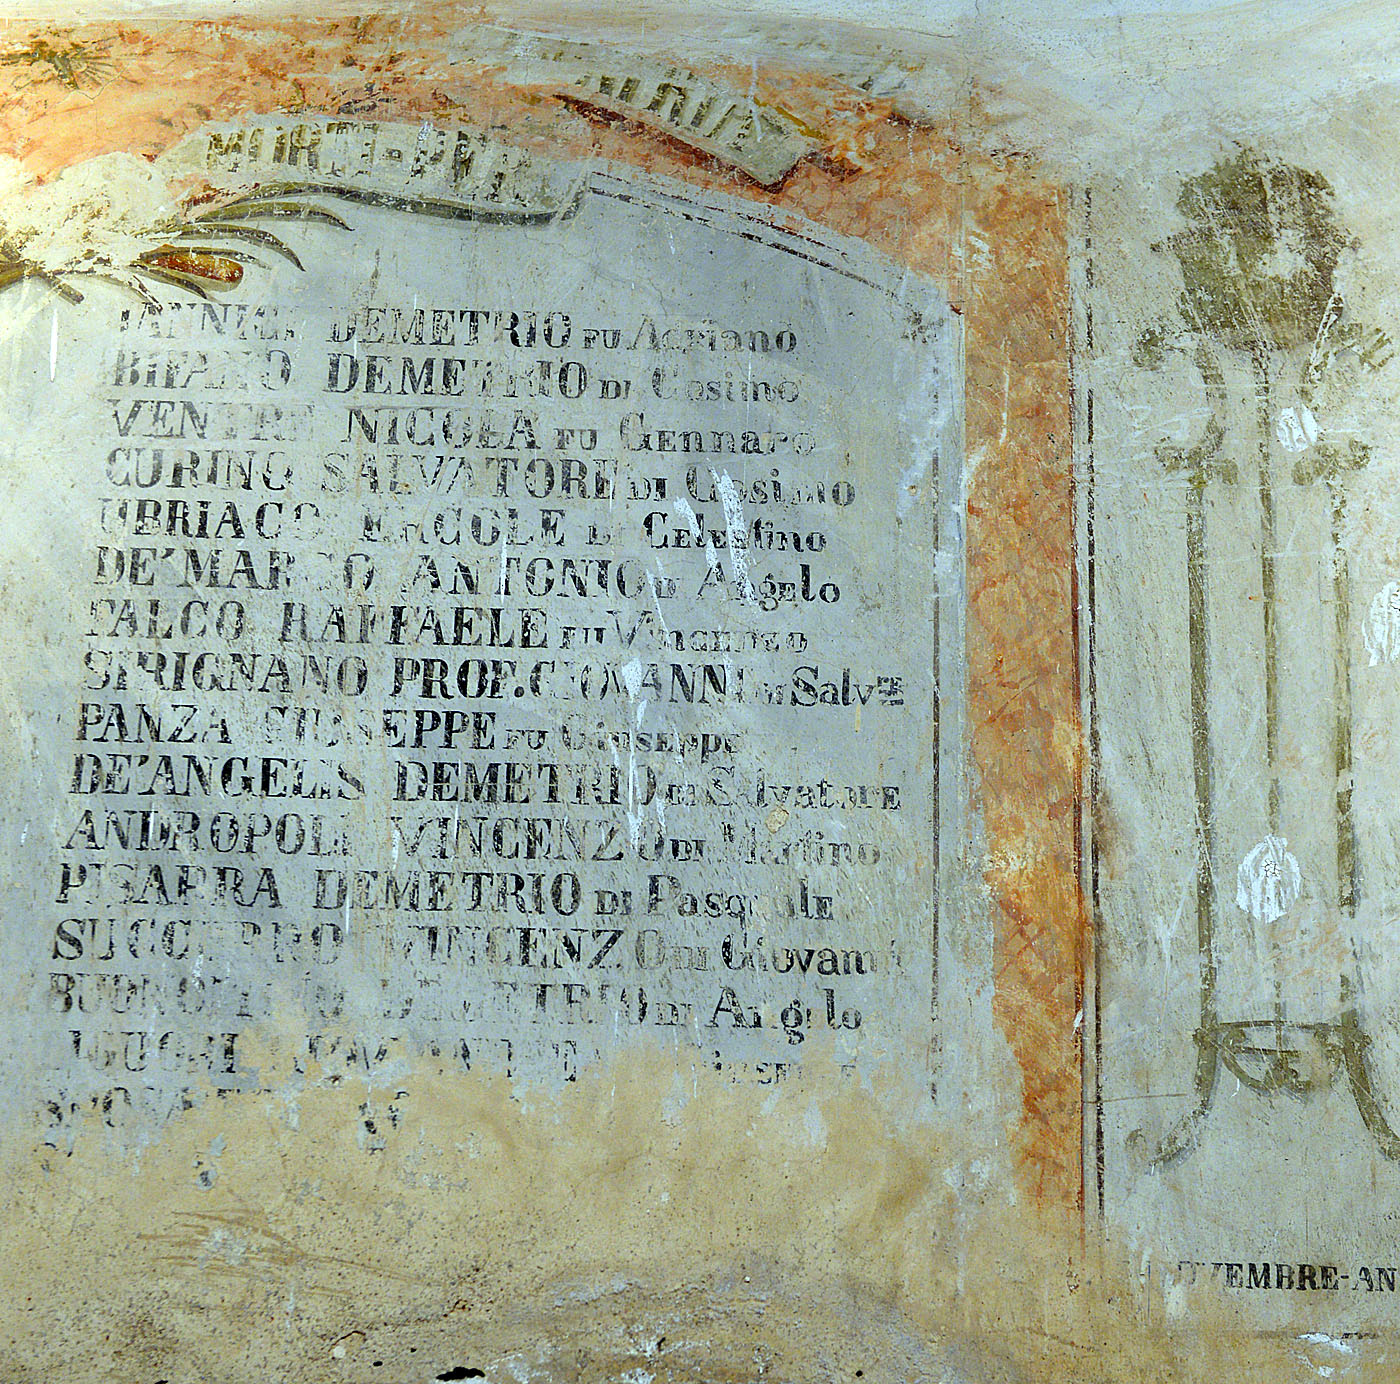 MORTE-PER
IANNICE DEMETRIO FU Adriano
BIFANO DEMETRIO DI Cosimo
VENTRE NICOLA FU Gennaro
CURINO SALVATORE DI Cosimo
UBRIACO ERCOLE DI Celestino
DE'MARCO ANTONIO DI Angelo
FALCO RAFFAELE FU Vincenzo
SIRIGNANO PROF. GIOVANNI DI Salvre
PANZA GIUSEPPE FU Giuseppe
DE'ANGELIS DEMETRIO DI Salvatore
ANDROPOLI VINCENZO DI Martino
PISARRA DEMETRIO DI Pasquale
SUCCURRO VINCENZO DI Giovanni
DEMETRIO DI Angelo
NOVEMBRE-AN